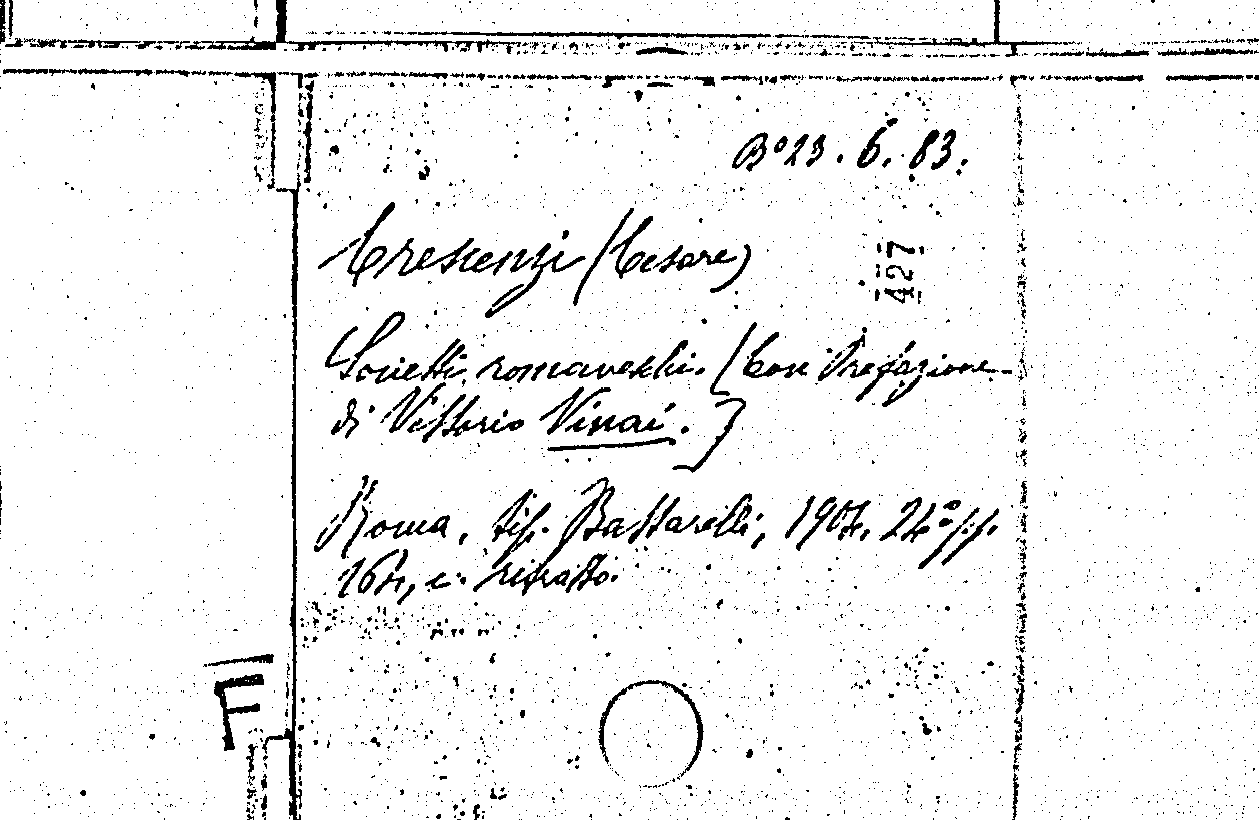 B° 23. 6. 83.
427
Crescenzi (Cesare)
Sonetti romaneschi. [Con Prefazione
di Vittorio Vinai.]
Roma, tip. Battarelli, 1904. 24° pp.
164, c. ritratto.
F